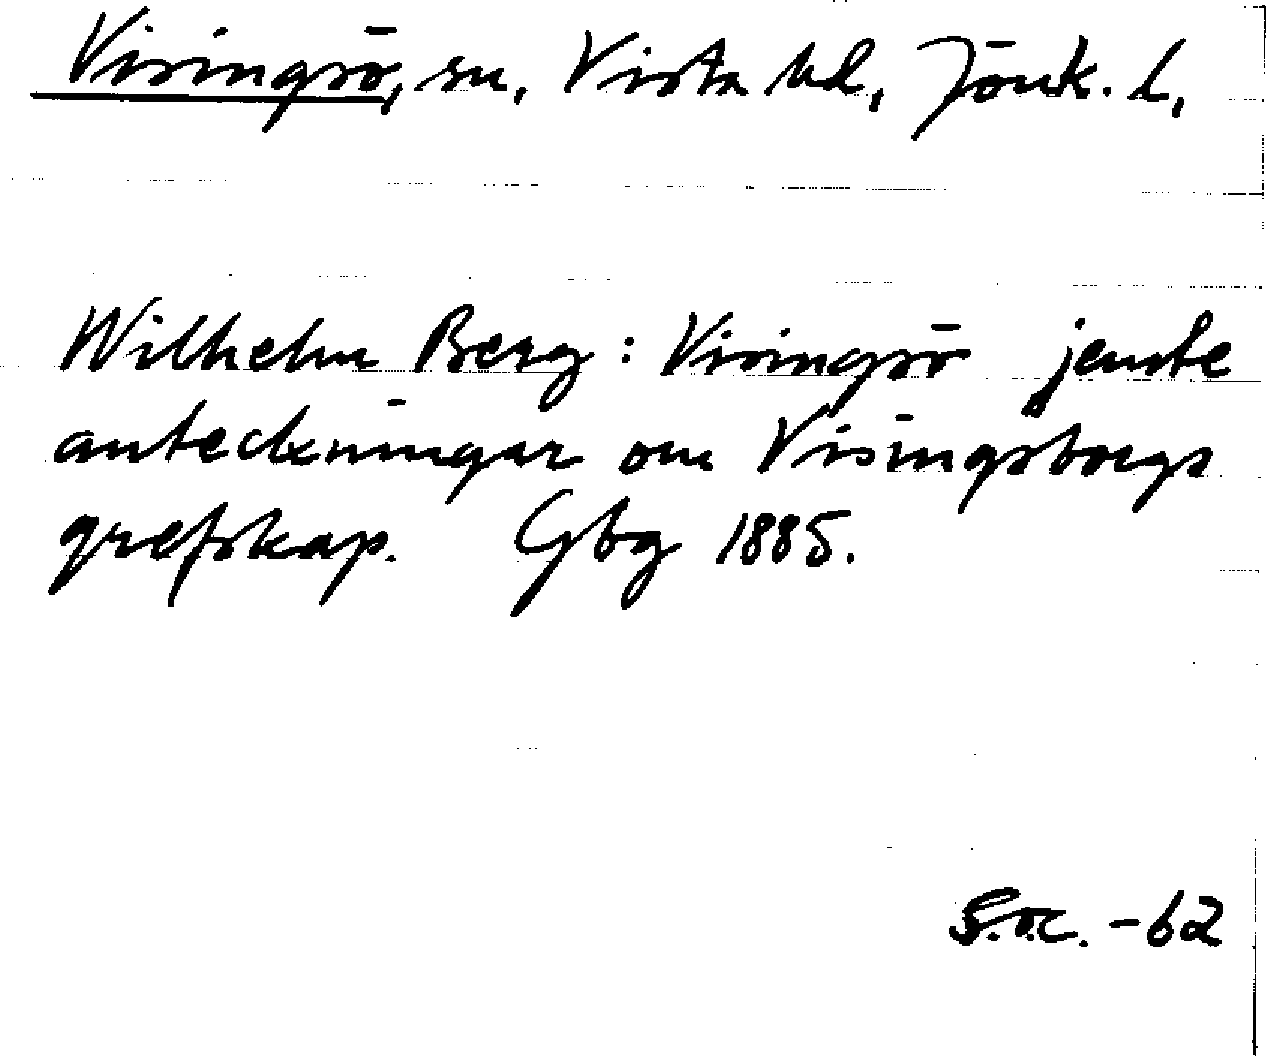 Visingsö, sn, Vista hd, Jönk. l,
Wilhelm Berg: Visingsö jemte
anteckningar om Visingsborgs
grefskap. Gbg 1885.
-62